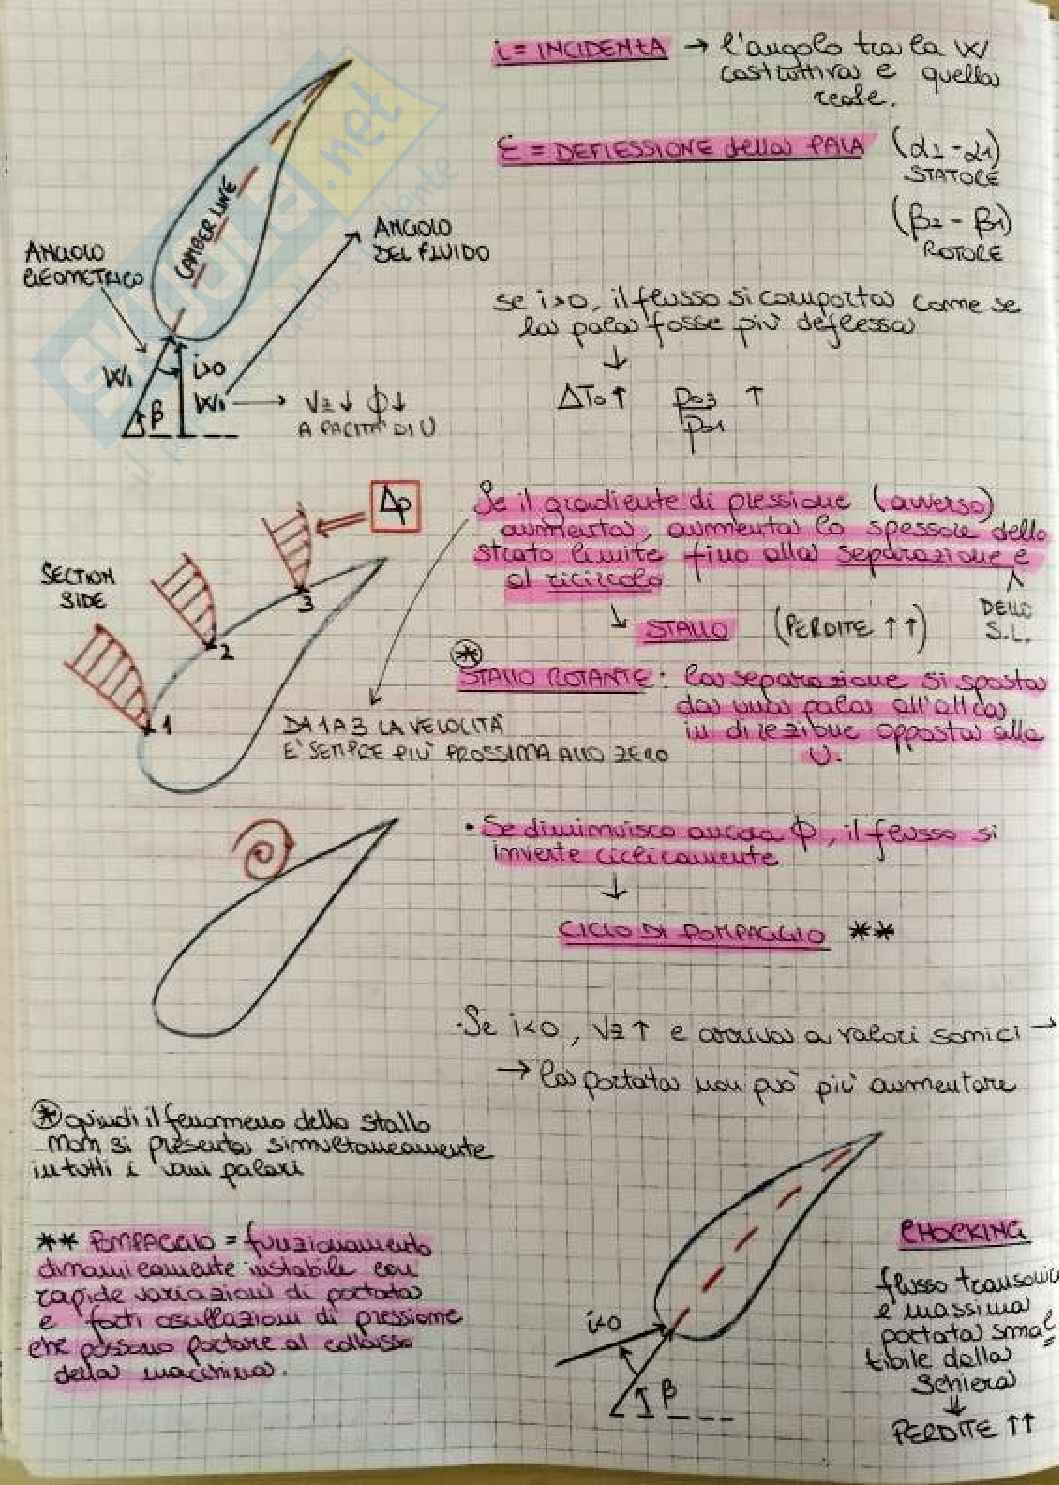 i = INCIDENZA → l'angolo tra la W
costruttiva e quella
reale.
ε = DEFLESSIONE della PALA (α2 - α1)
STATORE
(β2 - β1)
ROTORE
CAMBER LINE
ANGOLO
GEOMETRICO
ANGOLO
DEL FLUIDO
W1 i>0
β W1 → Vz ↓ ϕ ↓
A PARITÀ DI U
se i>0, il flusso si comporta come se
la pala fosse più deflessa
↓
ΔT0 ↑ p03 ↑
p01
Δp
SECTION
SIDE
3
2
1
Se il gradiente di pressione (avverso)
aumenta, aumenta lo spessore dello
strato limite fino alla separazione e
al ricircolo
DELLO
S.L.
↳ STALLO (PERDITE ↑↑)
* STALLO ROTANTE: la separazione si sposta
da una pala all'altra
in direzione opposta alla
U.
DA 1 A 3 LA VELOCITÀ
E' SEMPRE PIÙ PROSSIMA ALLO ZERO
• Se diminuisco ancora ϕ, il flusso si
inverte ciclicamente
↓
CICLO DI POMPAGGIO **
·Se i<0, Vz ↑ e arriva a valori sonici →
→ la portata non può più aumentare
* quindi il fenomeno dello stallo
non si presenta simultaneamente
in tutti i vani palari
** POMPAGGIO = funzionamento
dinamicamente instabile con
rapide variazioni di portata
e forti oscillazioni di pressione
che possono portare al collasso
della macchina.
i<0
β
CHOCKING
flusso transonico
e massima
portata smal
tibile dalla
schiera
↓
PERDITE ↑↑